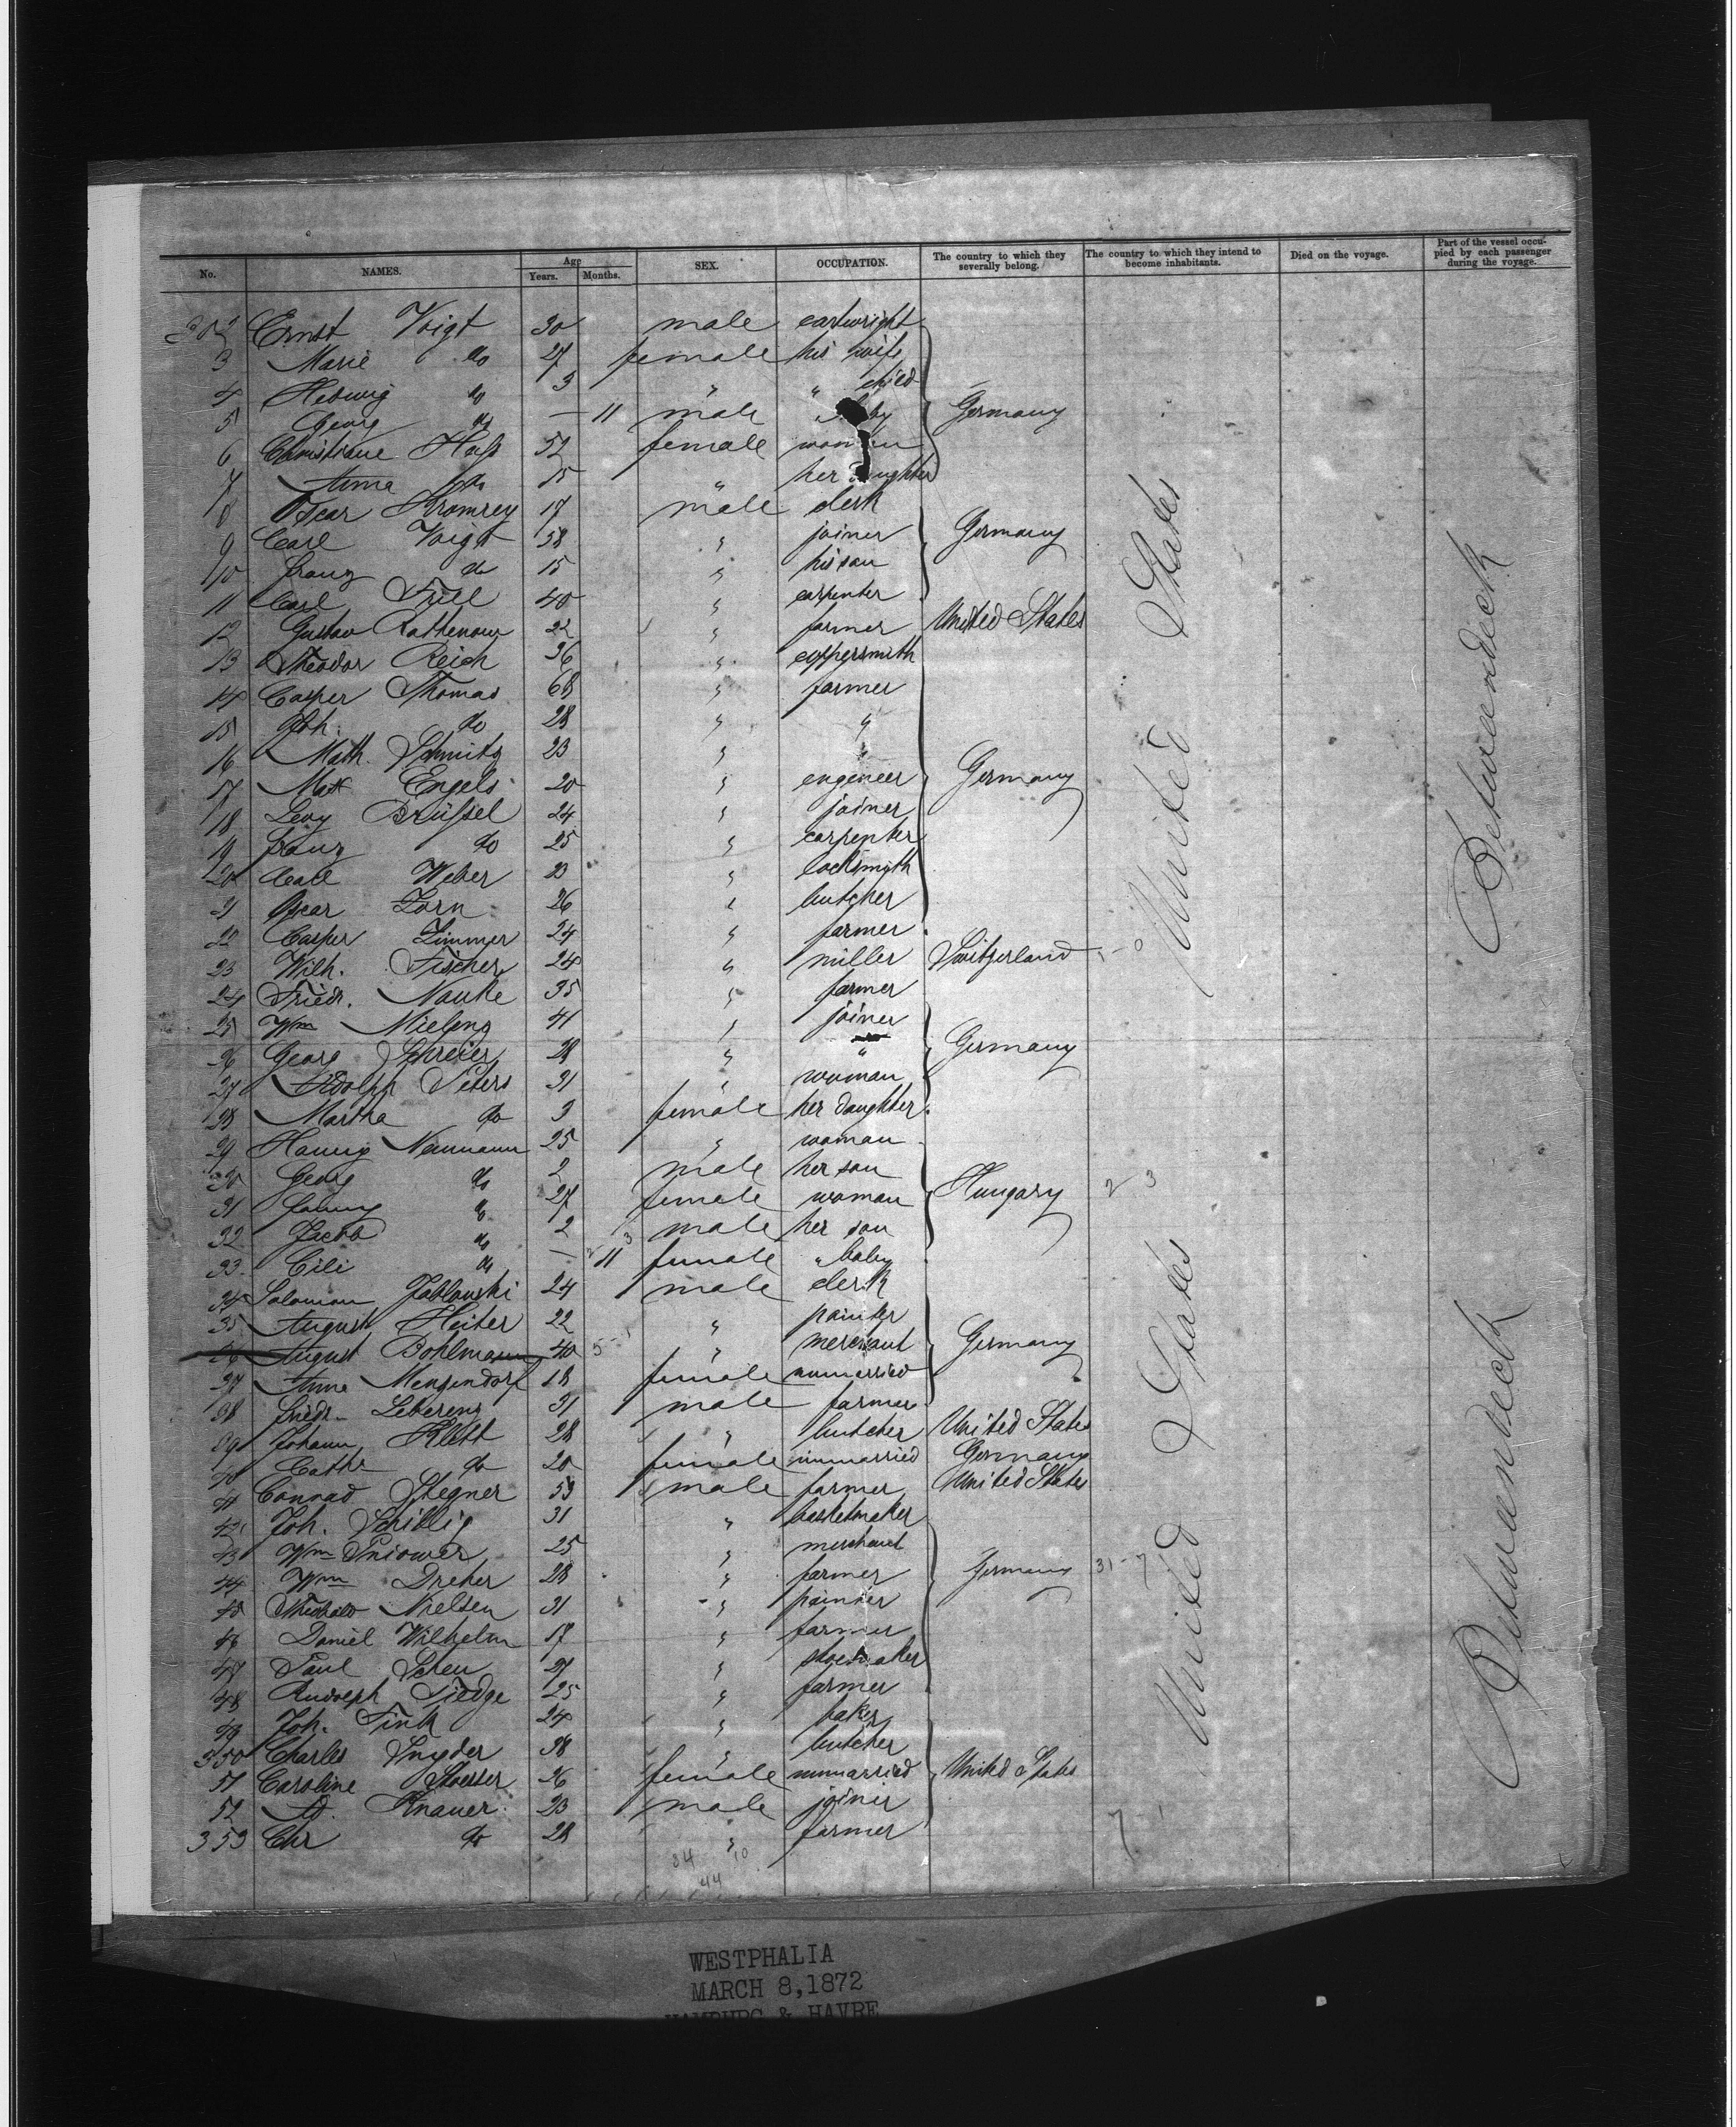 No. NAMES. Age Years. Months. SEX. OCCUPATION. The country to which they severally belong. The country to which they intend to become inhabitants. Died on the voyage. Part of the vessel occupied by each passenger during the voyage.
302 Ernst Voigt 30 male cartwright
3 Marie do 27 female his wife
4 Hedwig do 3 " " child
5 Georg do — 11 male " baby Germany
6 Christiane Haß 52 female woman
7 Anna do 15 " her daughter
8 Oscar Kromrey 17 male clerk
9 Carl Voigt 58 " joiner Germany
10 Franz do 15 " his son
11 Carl 40 " carpenter
12 Gustav Rathenow 22 " farmer United States
13 Theodor Reich 36 " coppersmith
14 Casper Thomas 68 " farmer
15 Joh. do 28 " "
16 Math. Schmitz 23 " "
17 Max Engels 20 " engeneer Germany
18 Levy Brüssel 24 " joiner
19 Franz do 25 " carpenter
20 Carl Weber 23 " locksmyth
21 Oscar Zorn 26 " butcher
22 Casper Zimmer 24 " farmer
23 Wilh. Fischer 24 " miller Switzerland
24 Friedr. Nauke 35 " farmer
25 Wm 41 " joiner
26 Georg Schreier 28 " " Germany
27 Adolph Peters 31 " woman
28 Martha do 3 female her daughter
29 Neumann 25 " woman
30 Georg do 2 male her son
31 do 27 female woman Hungary 2 3
32 Jacob do 2 male her son
33 Cili do — 11 female " baby
34 Salomon Jablonski 24 male clerk
35 August Heiter 22 " painter
36 August Bohlmann 40 " merchant Germany
37 Anna Mengendorf 18 female unmarried
38 Friedr. Leberenz 31 male farmer
39 Johann Klett 28 " butcher United States
40 Cathr do 20 female unmarried Germany
41 Conrad Stegner 53 male farmer United States
42 Joh. Schillig 31 " basketmaker
43 Wm Pniower 25 " merchant
44 Wm Dreher 28 " farmer Germany 31-7
45 Nielsen 31 " painter
46 Daniel Wilhelm 17 " farmer
47 Paul Scheu 27 " shoemaker
48 Rudolph Tiedge 25 " farmer
49 Joh. Fink 24 " baker
350 Charles Snyder 38 " butcher
51 Caroline Stoesser 26 female unmarried United States
52 Ad. Knauer 23 male joiner
353 Chr do 28 " farmer
34 10
44
United States
United States
Betweendeck
Betweendeck
WESTPHALIA
MARCH 8, 1872
HAMBURG & HAVRE